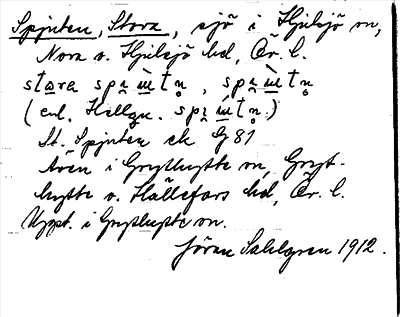 Spjuten, Stora, sjö i Hjulsjö sn,
Nora o. Hjulsjö hd, Ör. l.
stora
(enl. Hellgu.
St. Spjuten ek G 81
Även i Grythytte sn, Gryt-
hytte o. Hällefors hd, Ör. l.
Uppt. i Grythytte sn.
Jöran Sahlgren 1912.